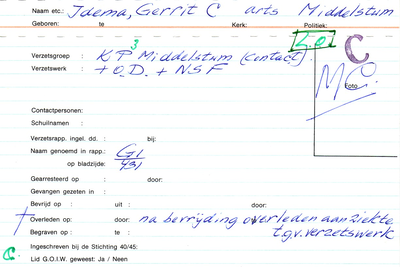 Naam etc.: Idema, Gerrit C arts Middelstum
Geboren: te Kerk: Politiek:
L.O.
C
Verzetsgroep : K P 3 Middelstum (contact)
Verzetswerk : + O.D. + NSF
MC.
Foto
Contactpersonen:
Schuilnaam :
Verzetsrapp. ingel. dd. : bij:
Naam genoemd in rapp.: G1
op bladzijde: 431
Gearresteerd op : door:
Gevangen gezeten in :
Bevrijd op : uit : door:
† Overleden op: door: na bevrijding overleden aan ziekte
Begraven op : te : t.g.v. verzetswerk
C. Ingeschreven bij de Stichting 40/45:
Lid G.O.I.W. geweest: Ja / Neen